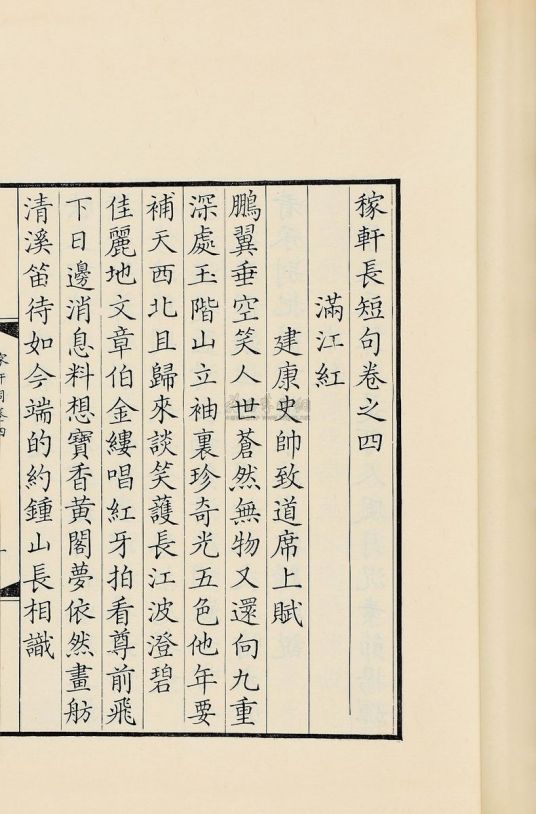 稼軒長短句卷之四
滿江紅
建康史帥致道席上賦
鵬翼垂空笑人世蒼然無物又還向九重
深處玉階山立袖裏珍奇光五色他年要
補天西北且歸來談笑護長江波澄碧
佳麗地文章伯金縷唱紅牙拍看尊前飛
下日邊消息料想寶香黃閣夢依然畫舫
清溪笛待如今端的約鍾山長相識